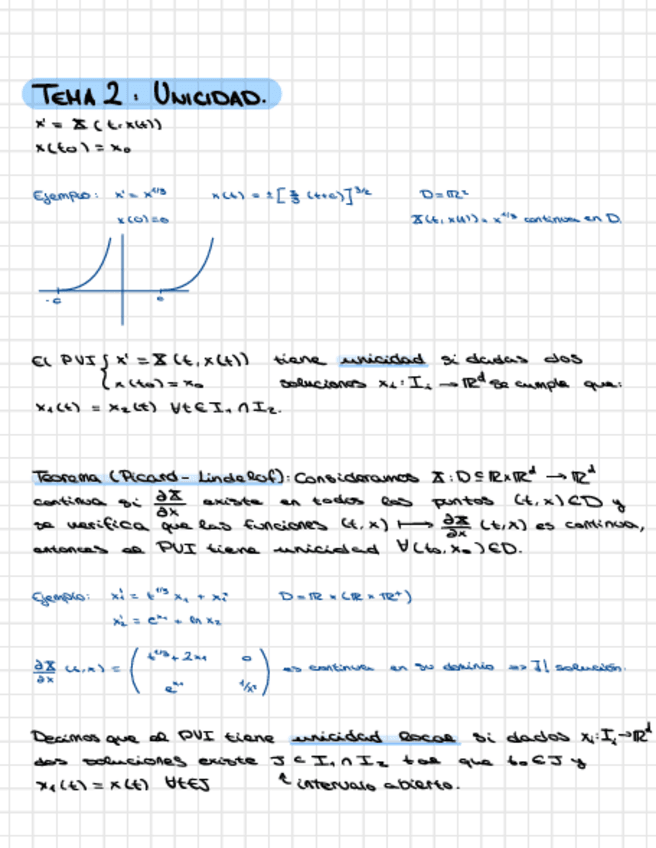 TEMA 2: UNICIDAD.
x' = X(t,x(t))
x(t₀) = x₀
Ejemplo: x' = x^{1/3} x(t) = ±[2/3 (t+c)]^{3/2} D=ℝ²
x(0)=0 X(t,x(t)) = x^{1/3} continua en D.
-c c
El PVI { x' = X(t,x(t)) tiene unicidad si dadas dos
x(t₀) = x₀ soluciones xᵢ: Iᵢ → ℝᵈ se cumple que:
x₁(t) = x₂(t) ∀t∈I₁∩I₂.
Teorema (Picard-Lindelof): Consideramos X: D⊆ℝ×ℝᵈ → ℝᵈ
continua si ∂X/∂x existe en todos los puntos (t,x)∈D y
se verifica que las funciones (t,x) ↦ ∂X/∂x (t,x) es continua,
entonces el PVI tiene unicidad ∀(t₀,x₀)∈D.
Ejemplo: x₁' = t^{1/3} x₁ + x₁² D=ℝ×(ℝ×ℝ⁺)
x₂' = e^{x₁} + ln x₂
∂X/∂x (t,x) = ( t^{1/3}+2x₁ 0 es continua en su dominio ⇒ ∃! solución.
e^{x₁} 1/x² )
Decimos que el PVI tiene unicidad local si dados xᵢ: Iᵢ→ℝᵈ
dos soluciones existe J ⊂ I₁∩I₂ tal que t₀∈J y
x₁(t) = x(t) ∀t∈J ↑ intervalo abierto.